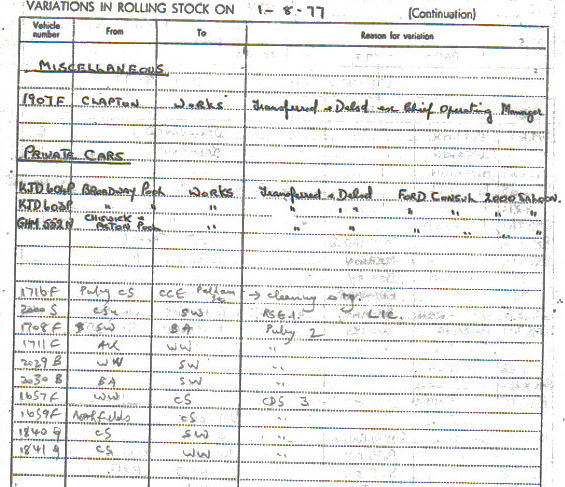 VARIATIONS IN ROLLING STOCK ON 1-8-77 (Continuation)
Vehicle number From To Reason for variation
MISCELLANEOUS
1907F CLAPTON WORKS Transferred & Delsd ex Chief Operating Manager
PRIVATE CARS
KJD604P BROADWAY Pool WORKS Transferred & Delsd FORD CONSUL 2000 SALOON.
KJD603P " " " " " " " " "
GHM 552N CHISWICK & ACTON Pool " " " " " " "
1716F Puley CS CCE Pelham → cleaning
2000 S CSu SW RSG1. LTC.
1708F SW BA Puley 2
1711F AE WW "
2029 B WW SW "
2030 B BA SW "
1657F WW CS CDS 3
1659F Northfields CS "
1840 CS SW "
1841 CS WW "